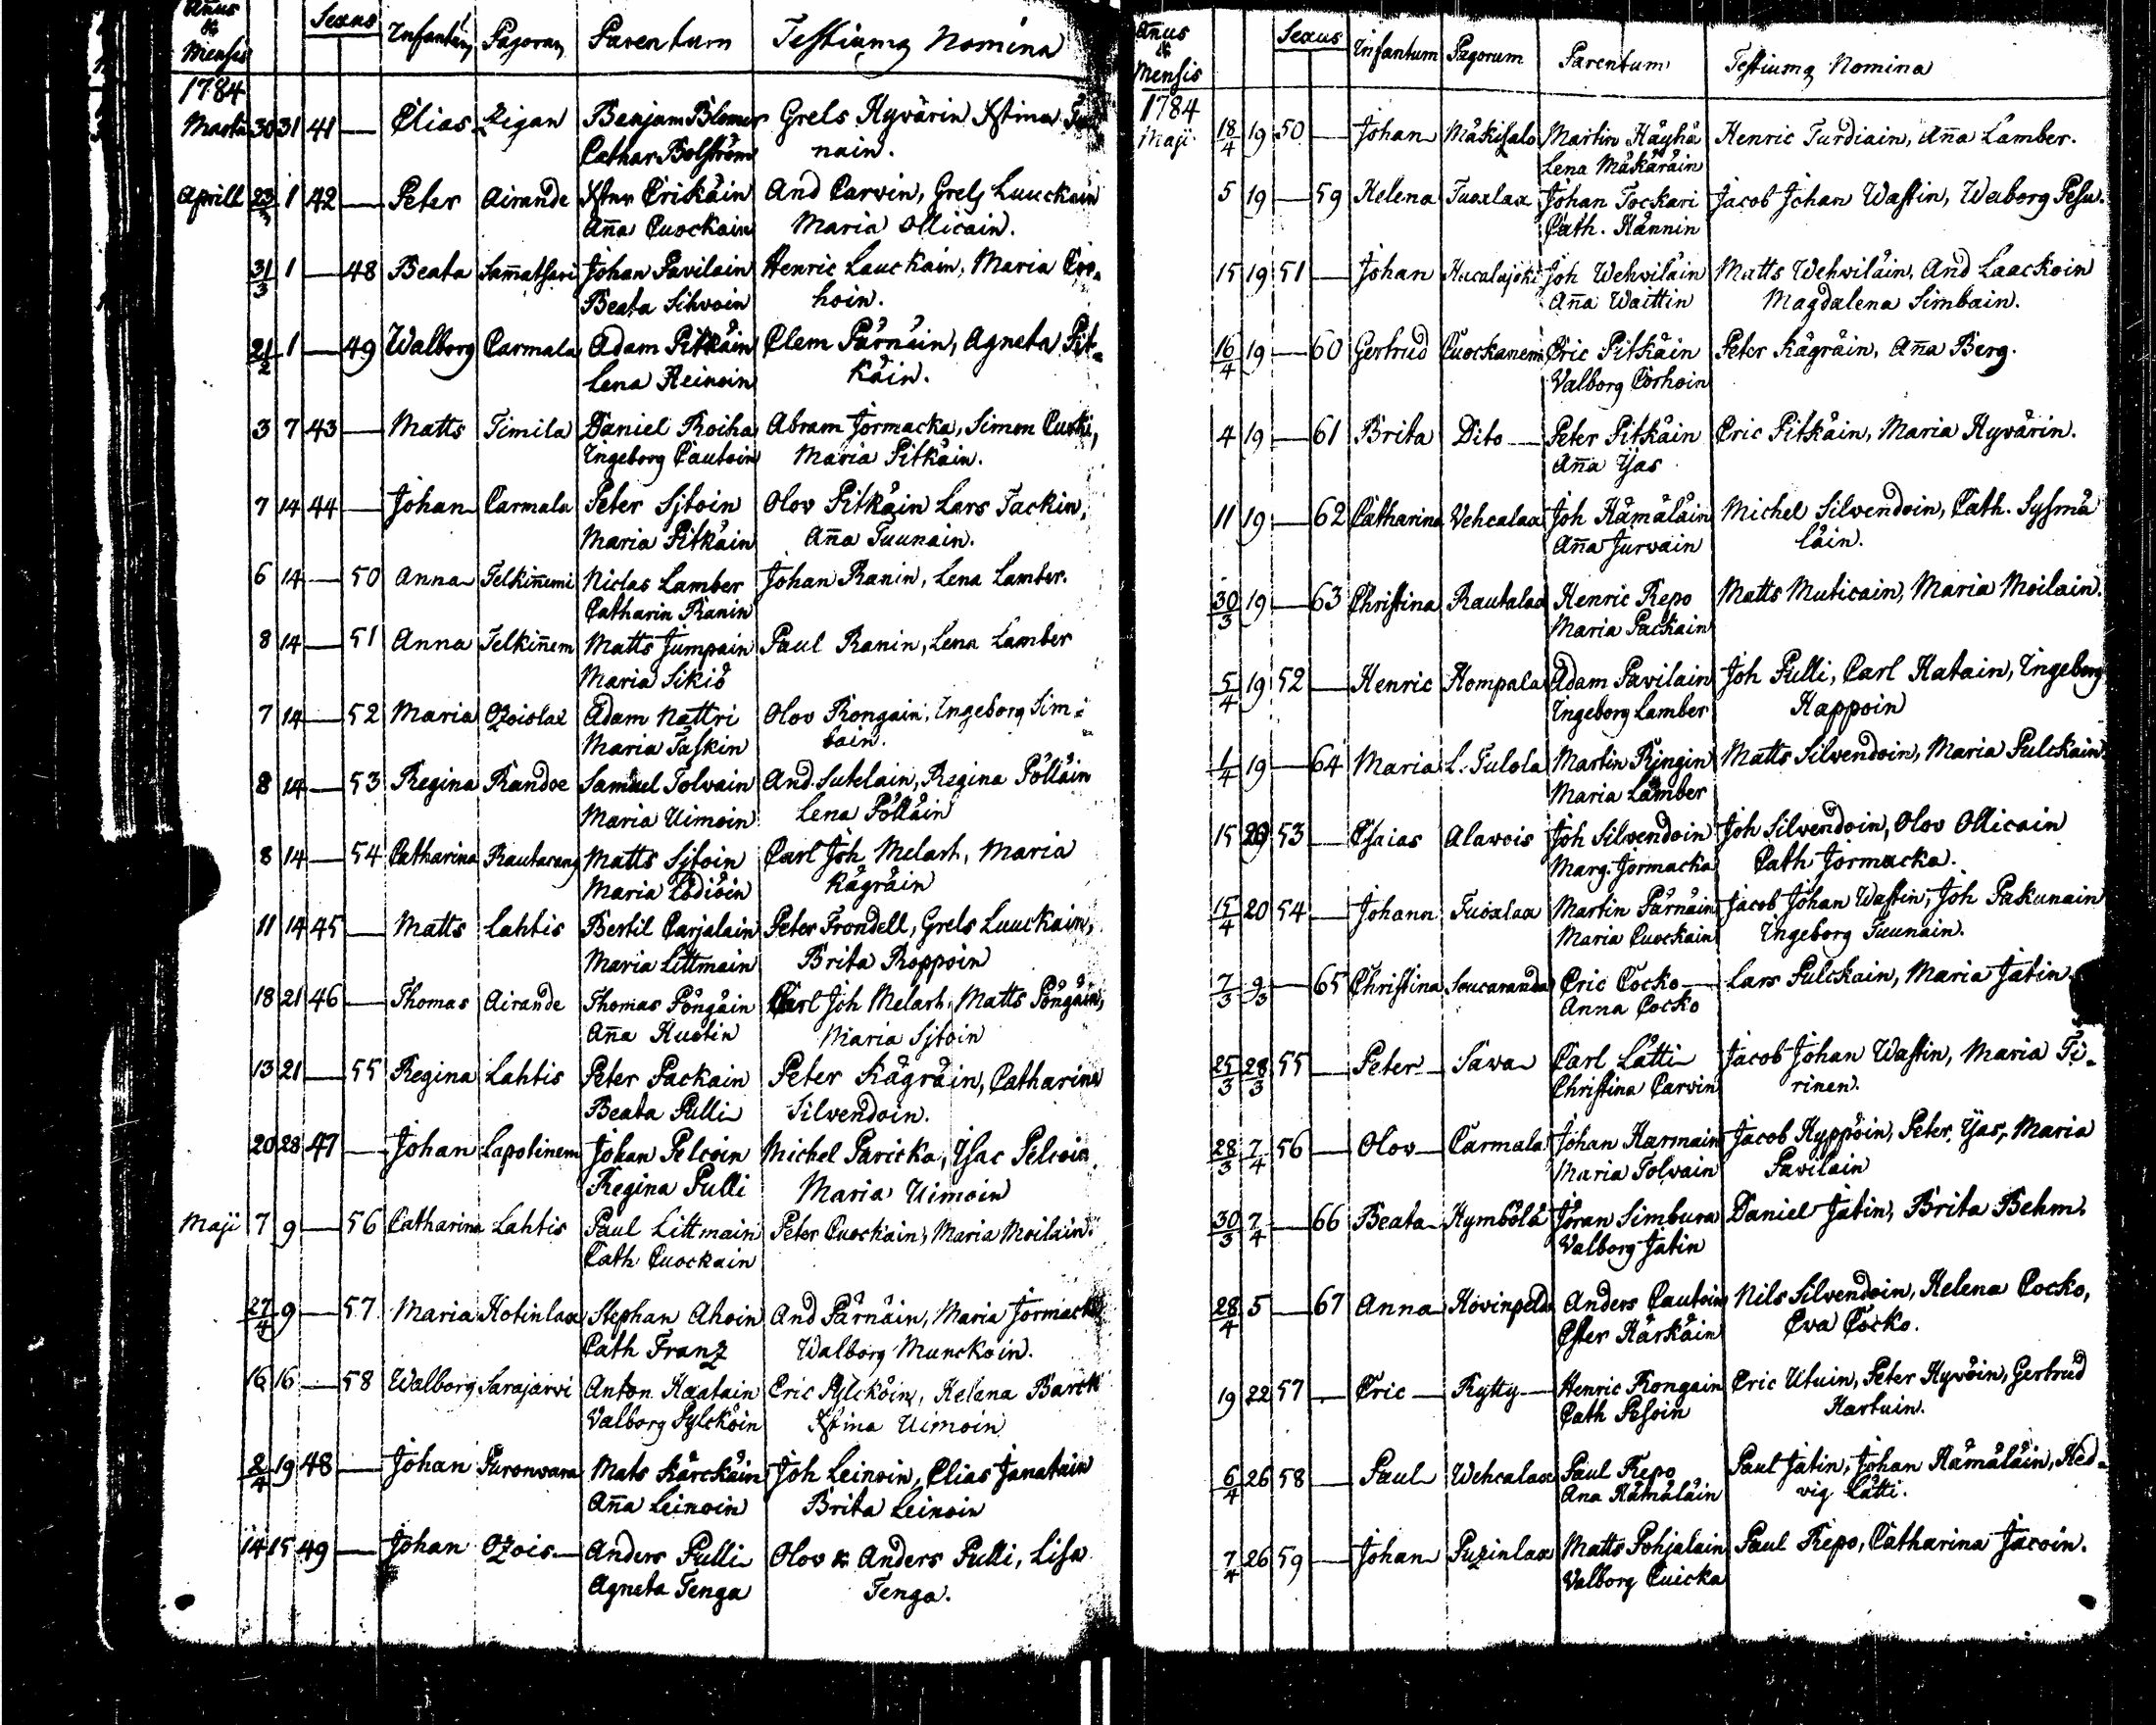 Añus & Mensis Sexus Infantum Pagorum Parentum Testiumq Nomina
1784
Martii 30 31 41 — Elias Zigan Benjam Blomer Grels Hyvärin Xstina
Cathar Bolström nain.
Aprill 23/3 1 42 — Peter Airande Xstur Erikäin And Carvin, Grels Luuckain
Aña Cuockain Maria Ollicain.
31/3 1 — 48 Beata Sam̃atsari Johan Pavilain Henric Lauckain, Maria Cor-
Beata Sihvoin hoin.
21/2 1 — 49 Walborg Carmala Adam Pitkäin Clem Pärnäin, Agneta Pit-
Lena Heinoin käin.
3 7 43 — Matts Timila Daniel Roiha Abram Jormacka, Simon Cuoki,
Ingeborg Cautoin Maria Pitkäin.
7 14 44 — Johan Carmala Peter Sjtoin Olov Pitkäin Lars Tackin,
Maria Pitkäin Aña Tuunain.
6 14 — 50 Anna Telkiñemi Niclas Lamber Johan Ranin, Lena Lamber.
Catharin Ranin
8 14 — 51 Anna Telkiñem Matts Jumpain Paul Ranin, Lena Lamber
Maria Sikiö
7 14 — 52 Maria Ozoislax Adam Nattri Olov Rongain, Ingeborg Sim-
Maria Taskin bain.
8 14 — 53 Regina Randoe Samuel Tolvain And. Sutelain, Regina Pölläin
Maria Uimoin Lena Pölläin
8 14 — 54 Catharina Rautacang Matts Sjtoin Carl Joh Melart, Maria
Maria Lödiöin Kägräin
11 14 45 — Matts Lahtis Bertil Carjalain Peter Frondell, Grels Luuckain,
Maria Littmain Brita Roppoin
18 21 46 — Thomas Airande Thomas Pöngäin Carl Joh Melart, Matts Pöngäin,
Aña Hustin Maria Sjtoin
13 21 — 55 Regina Lahtis Peter Packain Peter Kägräin, Catharina
Beata Pulli Silvendoin.
20 28 47 — Johan Lapolinem Johan Pelcoin Michel Paricka, Isac Pelcoin
Regina Pulli Maria Uimoin
Maji 7 9 — 56 Catharina Lahtis Paul Littmain Peter Cuockain, Maria Moilain.
Cath Cuockain
27/4 9 — 57 Maria Hotinlax Stephan Ahoin And Pärnäin, Maria Jormacka
Cath Franz Walborg Munckoin.
16 16 — 58 Walborg Sarajärvi Anton Haatain Eric Pylcköin, Helena Barck
Valborg Pylckoin Xstina Uimoin
2/4 19 48 — Johan Puronvara Mats Kärckäin Joh Leinoin, Elias Janatuin
Aña Leinoin Brita Leinoin
14 15 49 — Johan Ozois — Anders Pulli Olov & Anders Pulli, Lisa
Agneta Tenga Tenga.
Añus & Mensis Sexus Infantum Pagorum Parentum Testiumq Nomina
1784
Maji 18/4 19 50 — Johan Mäkisalo Martin Häyhä Henric Turdiain, Aña Lamber.
Lena Mäkäräin
5 19 — 59 Helena Tuoxlax Johan Tockari Jacob Johan Wastin, Walborg Pesu.
Cath. Hännin
15 19 51 — Johan Hucalajoki Joh Wehviläin Matts Wehviläin, And Laackoin
Aña Waittin Magdalena Simbain.
16/4 19 — 60 Gertrud Cuockanem Eric Pitkäin Peter Kägräin, Aña Berg.
Valborg Corhoin
4 19 — 61 Brita Dito — Peter Pitkäin Eric Pitkäin, Maria Hyvärin.
Aña Yas
11 19 — 62 Catharina Vehcalax Joh Hämäläin Michel Silvendoin, Cath. Sysmä
Aña Jurvain läin.
30/3 19 — 63 Christina Rautalax Henric Repo Matts Muticain, Maria Moilain.
Maria Packain
5/4 19 52 — Henric Hompala Adam Pavilain Joh Pulli, Carl Hatain, Ingeborg
Ingeborg Lamber Happoin
1/4 19 — 64 Maria L. Tulola Martin Ringin Matts Silvendoin, Maria Pulckain.
Maria Lamber
15 20 53 — Esaias Alavois Joh Silvendoin Joh Silvendoin, Olov Ollicain
Marg. Jormacka Cath Jormacka.
15/4 20 54 — Johann Tuoxlax Martin Pärnäin Jacob Johan Wastin, Joh Pakunain
Maria Cuockain Ingeborg Tuunain.
7/3 9/3 — 65 Christina Soucaranda Eric Cocko — Lars Pulckain, Maria Jatin.
Anna Cocko
25/3 28/3 55 — Peter — Sawa — Carl Lätti — Jacob Johan Wastin, Maria Ti-
Christina Carvin rinen.
28/3 7/4 56 — Olov — Carmala Johan Harmain Jacob Hyppöin, Peter Yas, Maria
Maria Tolvain Pavilain
30/3 7/4 — 66 Beata Hymbölä Jöran Simbura Daniel Jatin, Brita Behm.
Valborg Jatin
28/4 5 — 67 Anna Hovinpelda Anders Cautoin Nils Silvendoin, Helena Cocko,
Ester Härkäin Eva Cocko.
19 22 57 — Eric — Rytty — Henric Rongain Eric Utuin, Peter Hyvöin, Gertrud
Cath Pesoin Hartuin.
6/4 26 58 — Paul Wehcalax Paul Repo Paul Jatin, Johan Hämäläin, Hed-
Ana Hämäläin vig Lätti.
7/4 26 59 — Johan Puzinlax Matts Pohjalain Paul Repo, Catharina Jacoin.
Valborg Cuicka